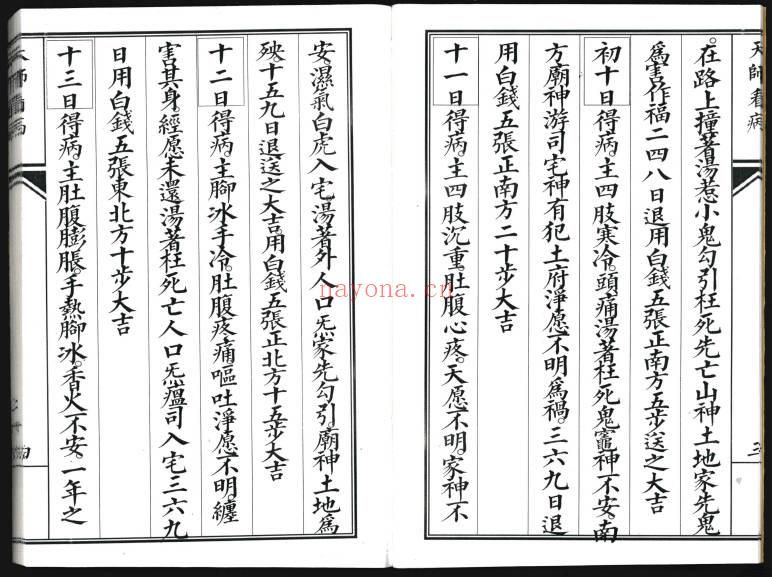 天師看病
在路上撞著湯惹小鬼勾引枉死先亡山神土地家先鬼
為害作福二四八日退用白錢五張正南方五步送之大吉
初十日得病主四肢寒冷頭痛湯著枉死鬼竈神不安南
方廟神游司宅神有犯土府淨愿不明為禍三六九日退
用白錢五張正南方二十步大吉
十一日得病主四肢沉重肚腹心疼天愿不明家神不
安濕氣白虎入宅湯著外人口炁家先勾引廟神土地為
殃十五九日退送之大吉用白錢五張正北方十五步大吉
十二日得病主腳冰手冷肚腹疼痛嘔吐淨愿不明纏
害其身經愿未還湯著枉死亡人口炁瘟司入宅三六九
日用白錢五張東北方十步大吉
十三日得病主肚腹膨脹手熱腳冰香火不安一年之
nayona.cn